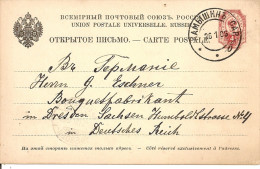 ВСЕМІРНЫЙ ПОЧТОВЫЙ СОЮЗЪ. РОССІЯ
UNION POSTALE UNIVERSELLE. RUSSIE
ОТКРЫТОЕ ПИСЬМО. — CARTE POSTALE
КАМЫШИНЪ САР.
26 1 09
Въ Германіе
Herren G. Eschner
Bouquetfabrikant
in Dresden Sachsen Humboldtstrasse No 4
in Deutsches Reich
На этой сторонѣ пишется только адресъ. — Côté réservé exclusivement à l'adresse.